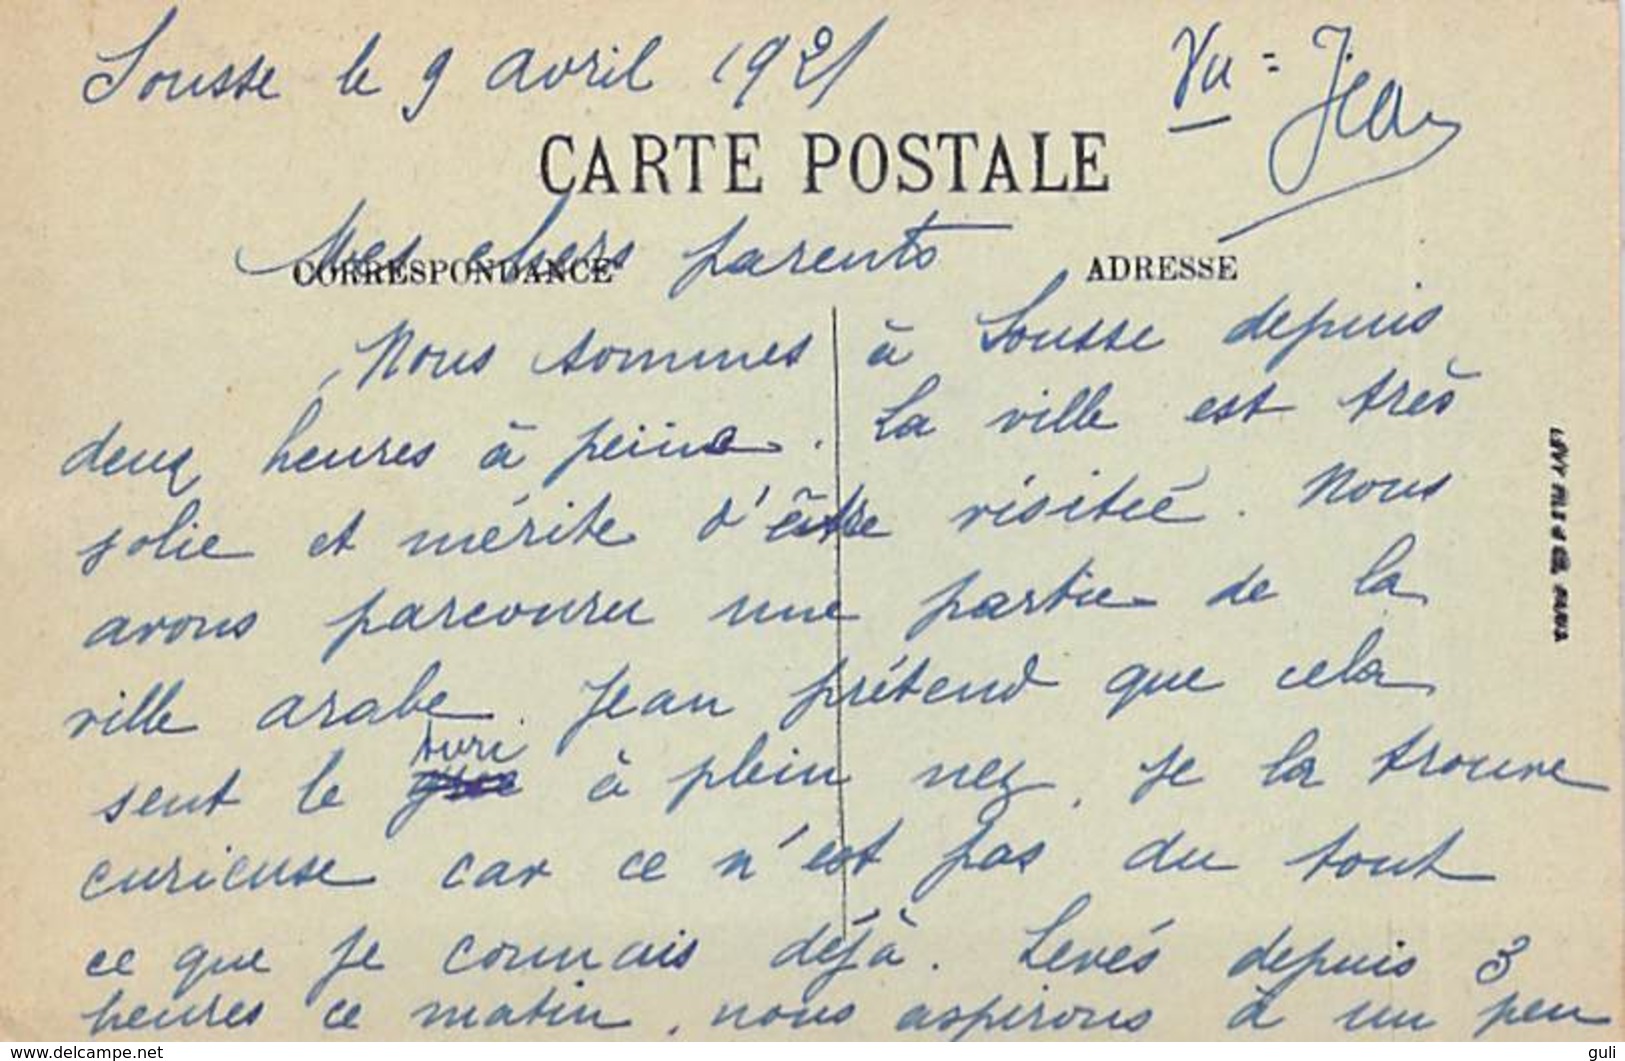 Sousse le 9 avril 1921
Vu = Jean
CARTE POSTALE
Mes chers parents
CORRESPONDANCE
ADRESSE
Nous sommes à Sousse depuis
deux heures à peine. La ville est très
jolie et mérite d'être visitée. Nous
avons parcouru une partie de la
ville arabe. Jean prétend que cela
sent le à plein nez, je la trouve
curieuse car ce n'est pas du tout
ce que je connais déjà. Levés depuis 3
heures ce matin, nous aspirons à un peu
LÉVY FILS & Cie, PARIS
www.delcampe.net
guli